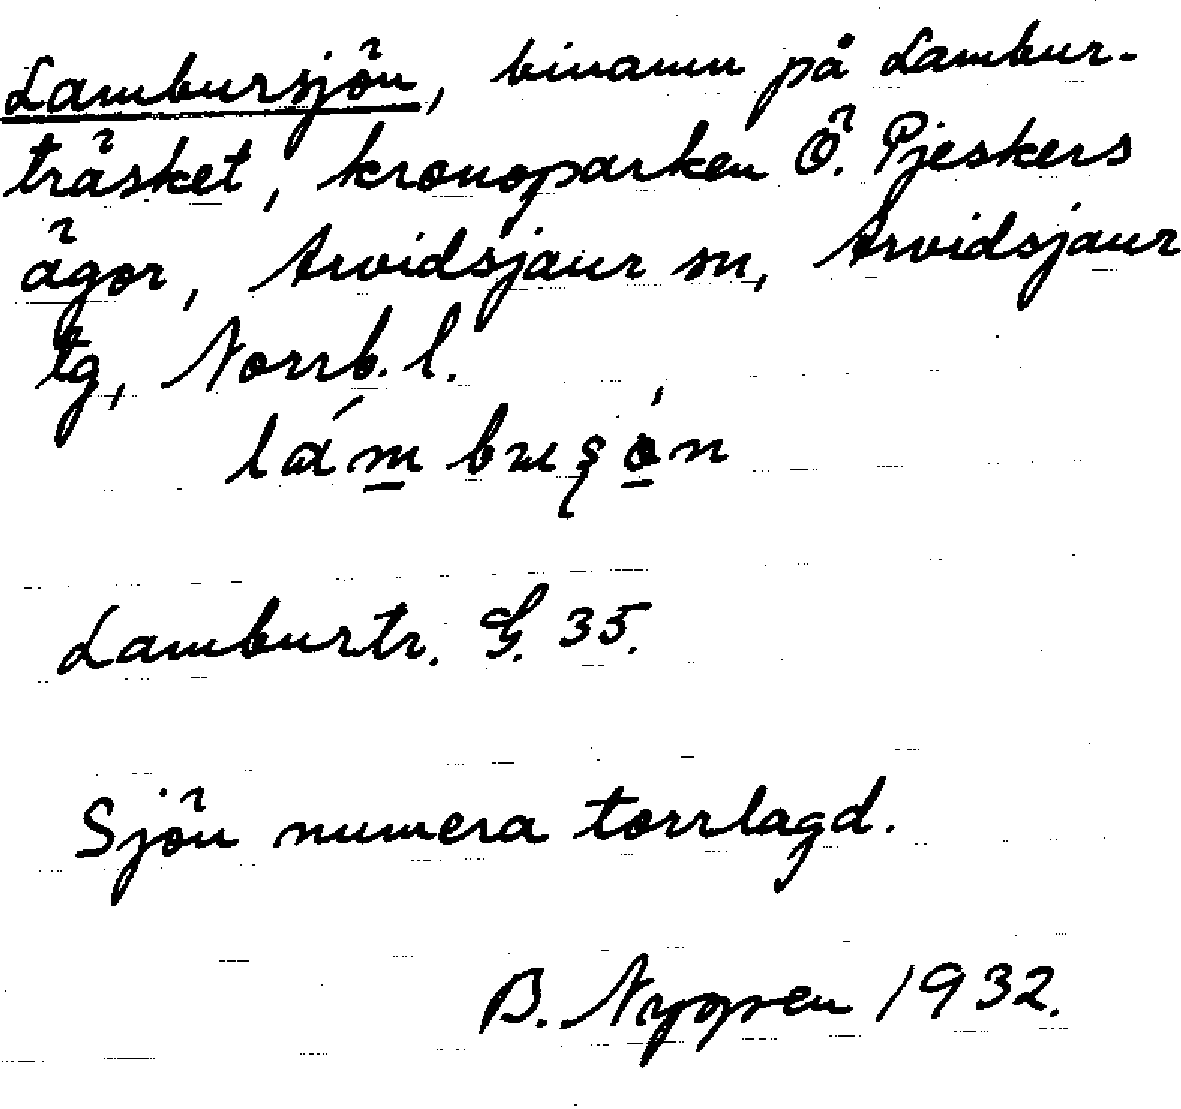 Lambursjön, binamn på Lambur-
träsket, kronoparken Ö. Pjeskers
ägor, Arvidsjaur sn, Arvidsjaur
tg, Norrb. l.
Lamburtr. G. 35.
Sjön numera torrlagd.
B. Nygren 1932.